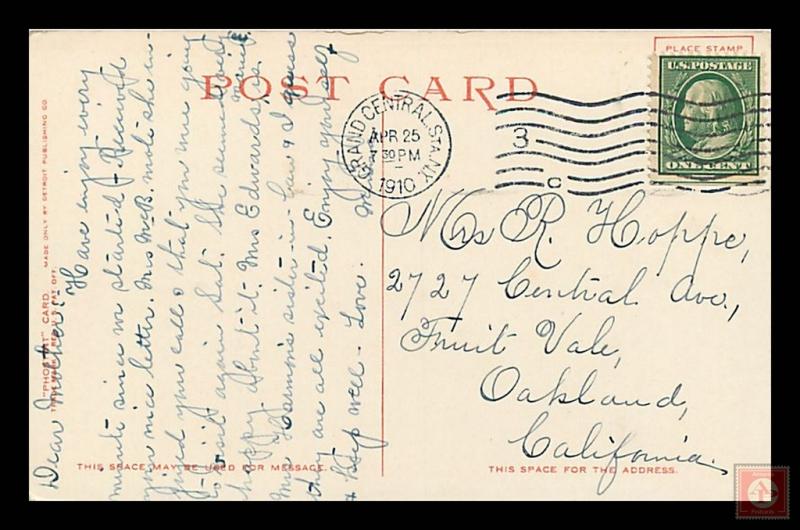 POST CARD
PLACE STAMP
U.S. POSTAGE
ONE CENT
GRAND CENTRAL STA. N.Y.
APR 25
7 30 PM
1910
3
C
"PHOSTINT" CARD
MADE ONLY BY DETROIT PUBLISHING CO.
TRADE MARK REG. U.S. PAT. OFF.
Dear Mother: Have enjoy every
minute since we started & Received
your nice letter. Mrs McB. note she in-
joyed you call & that you were going
to visit again Sat. She seemed very
happy about it. Mrs Edwards, Mrs.
Mrs Harmon's sister-in-law & I guess
they are all excited. Enjoy yourself
& Keep well - Love.
Mrs R. Hoppe,
2727 Central Ave.,
Fruit Vale,
Oakland,
California.
THIS SPACE MAY BE USED FOR MESSAGE.
THIS SPACE FOR THE ADDRESS.